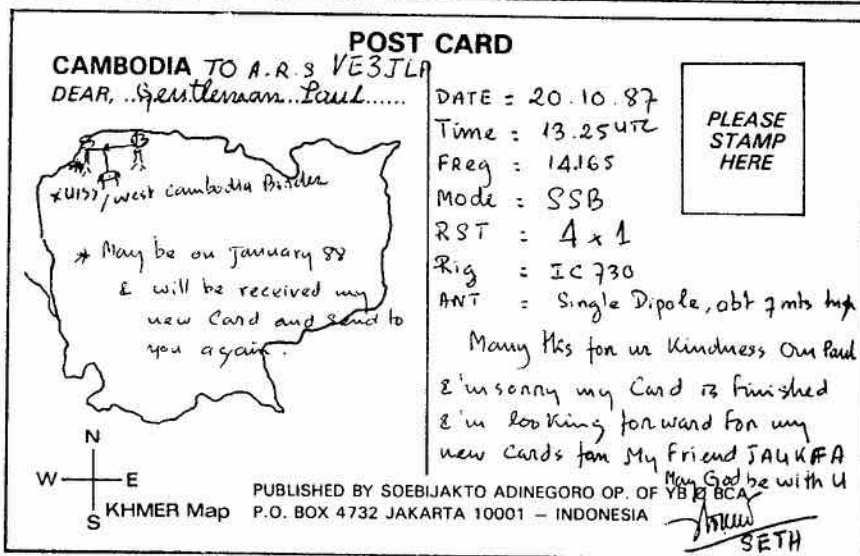 POST CARD
CAMBODIA TO A.R.S VE3JLA
DEAR, ..Gentleman..Paul......
XU1SS/west Cambodia Border
* May be on January 88
I will be received my
new Card and send to
you again.
N
W E
S
KHMER Map
DATE = 20.10.87
Time : 13.25 UTC
Freq : 14.165
Mode : SSB
RST : 4 x 1
Rig : IC 730
ANT : Single Dipole, abt 7 mts
PLEASE
STAMP
HERE
Many tks for ur Kindness Om Paul
I'm sorry my Card is finished
I'm looking forward for my
new Cards My Friend
May God be with U
PUBLISHED BY SOEBIJAKTO ADINEGORO OP. OF YBØBCA
P.O. BOX 4732 JAKARTA 10001 – INDONESIA
SETH